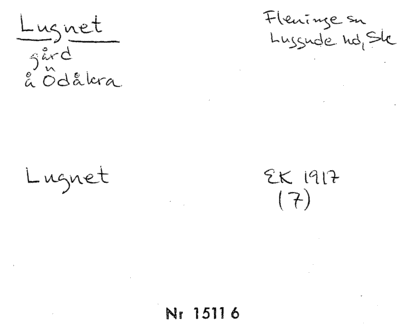 Lugnet
gård
å Ödåkra
Fleninge sn
Luggude hd, Sk
Lugnet
EK 1917
(7)
Nr 15116